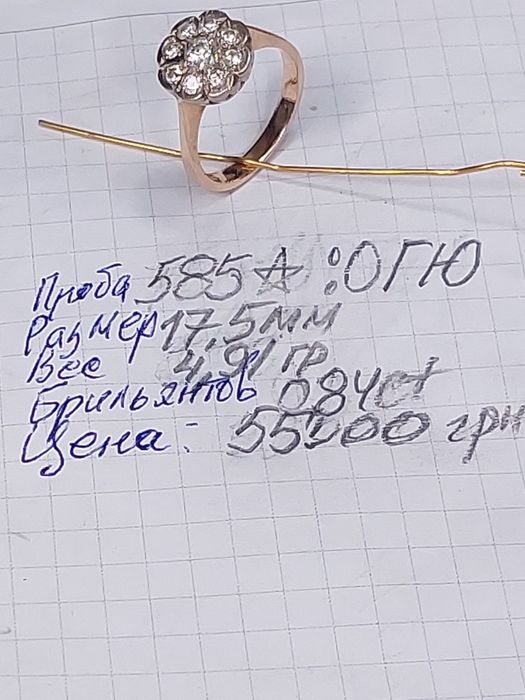 Проба 585☆ :ОГЮ
Размер 17,5мм
Вес 4,91 гр
Брильянтов 084ct
Цена: 55200 грн